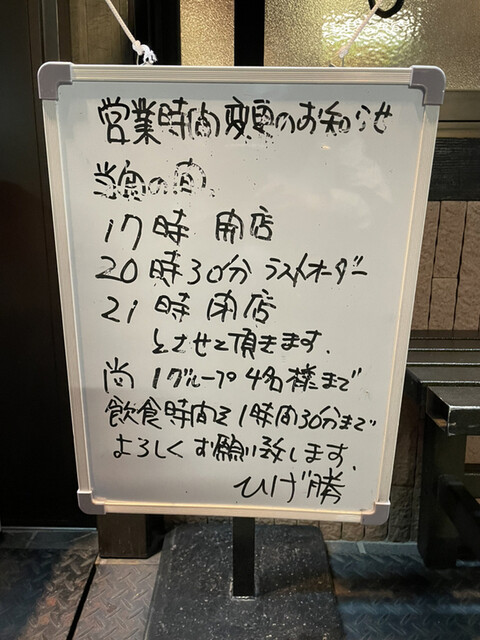 営業時間変更のお知らせ
当面の間
17時 開店
20時30分 ラストオーダー
21時 閉店
とさせて頂きます.
尚 1グループ4名様まで
飲食時間を1時間30分まで
よろしくお願い致します.
ひげ勝